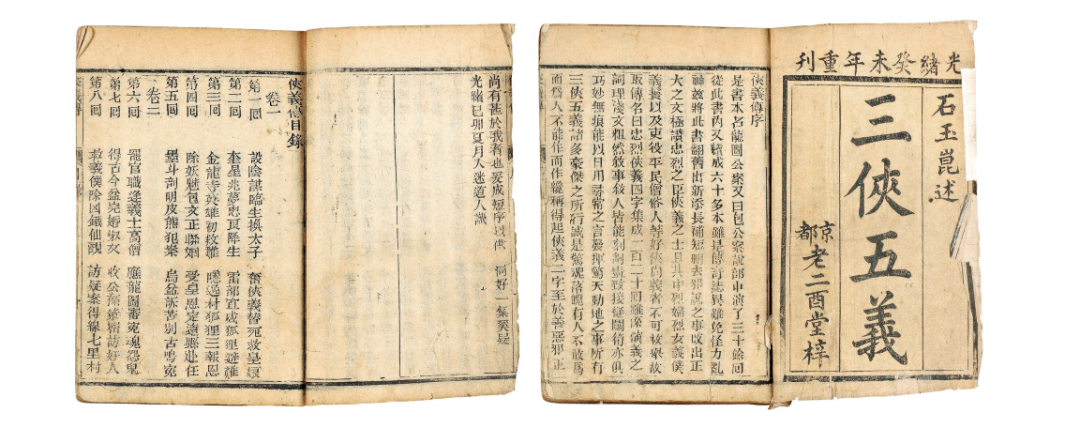 光緒癸未年重刊
石玉崑述
三俠五義
京都老二酉堂梓
俠義傳序
是書本名龍圖公案又曰包公案說部中演了三十餘回
從此書內又續成六十多本雖是傳奇誌異難免怪力亂
神兹將此書翻舊出新添長補短刪去邪說之事改出正
大之文極讚忠烈之臣俠義之士且其中烈婦烈女義僕
義鬟以及吏役平民僧俗人等好俠尚義者不可枚舉故
取傳名曰忠烈俠義四字集成一百二十回雖係演義之
詞理淺文粗然敘事敘人皆能刻劃盡致接縫鬪榫亦俱
巧妙無痕能以日用尋常之言發揮驚天動地之事所有
三俠五義諸多豪傑之所行誠是驚魂落魄有人不敢爲
而爲人不能作而作纔稱得起俠義二字至於善惡邪正
尚有甚於我者也爰成短序以供 同好一粲
光緒己卯夏月入迷道人識
俠義傳目錄
卷一
第一回 設陰謀臨生換太子 奮俠義替死救皇娘
第二回 奎星兆夢忠良降生 雷部宣威狐狸避難
第三回 金龍寺英雄初救難 隱逸村狐狸三報恩
第四回 除妖魅包文正聯姻 受皇恩定遠縣赴任
第五回 墨斗剖明皮熊犯案 烏盆訴苦別古鳴冤
卷二
第六回 罷官職逢義士高僧 應龍圖審冤魂怨鬼
第七回 得古今盆完婚淑女 收公孫策密訪奸人
第八回 救義僕除凶鐵仙觀 訪疑案得線七里村